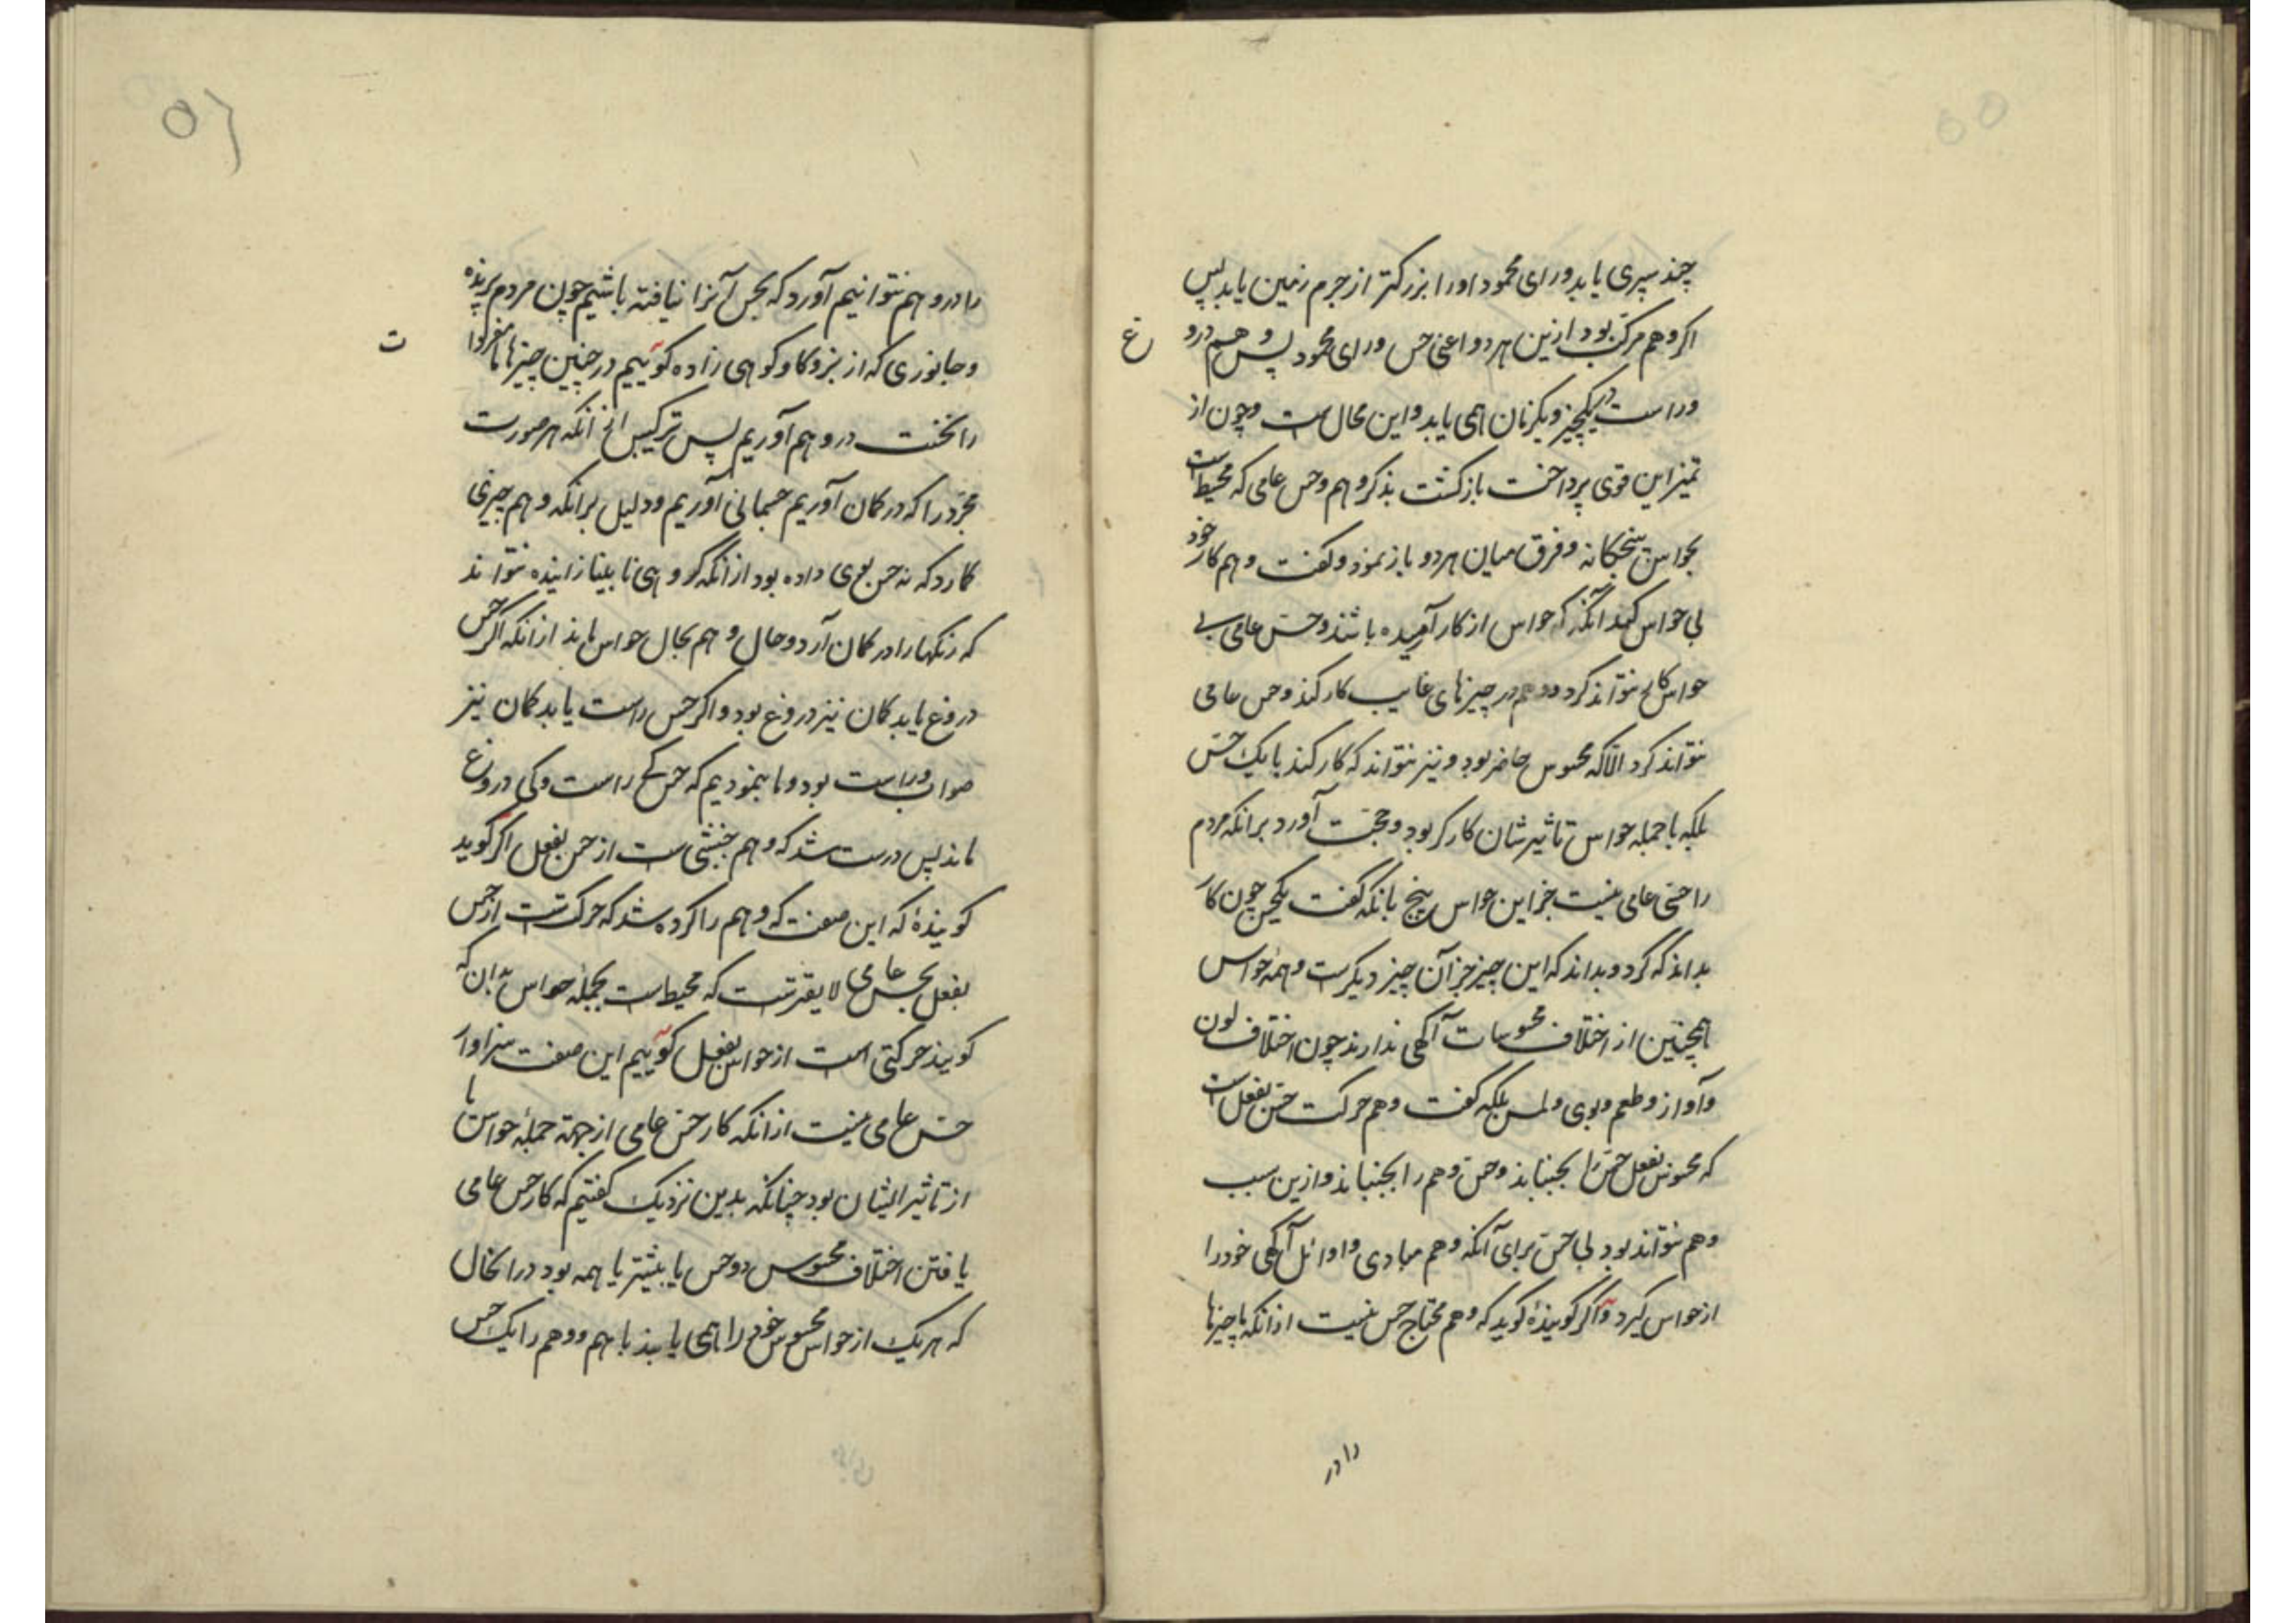 چند سپری یابد ورای محمود او را بزرکتر از جرم زمین یابد پس
اکر وهم مرکب بود ازین هر دو اعنی حس و رای محمود پس وهم درو
وراست در یکچیز ویکزمان همی یابد واین محال است وچون از
تمیز این قوی پرداخت بازکشت بذکر وهم وحس عامی که محیط است
بحواس پنجکانه وفرق میان هر دو باز نمود وکفت وهم کار خود
بی حواس کند آنکه که حواس از کار آرمیده باشند وحس عامی بی
حواس کار نتواند کرد ووهم در چیزهای غایب کار کند وحس عامی
نتواند کرد الا که محسوس حاضر بود ونیز نتواند که کار کند با یک حس
بلکه با جمله حواس تاثیرشان کارکر بود وحجت آورد برانکه مردم
را حسی عامی نیست جز این حواس پنج بانکه کفت یکحس چون کار
بداند که کرد وبداند که این چیز جز آن چیز دیکرست وهمه حواس
همچنین از اختلاف محسوسات آکهی ندارند چون اختلاف لون
وآواز وطعم وبوی ولمس بلکه کفت وهم حرکت حس بفعل است
که محسوس بفعل حس را بجنباند وحس وهم را بجنباند وازین سبب
وهم نتواند بود بی حس برای آنکه وهم مبادی واوائل آکهی خود را
از حواس کیرد واکر کوینده کوید که وهم محتاج حس نیست ازانکه ما چیزها
را در
غ
۵۶
را در وهم نتوانیم آورد که بحس آنرا نیافته باشیم چون مردم پرنده
وجانوری که از بز وکاوکوهی زاده کوییم در چنین چیزها ما مفردا
را نخست در وهم آوریم پس ترکیب الخ انکه هر صورت
مجرد را که در کمان آوریم جسمانی آوریم ودلیل برانکه وهم چیزی
کارد که نه حس بوی داده بود ازانکه کروهی نابینا زاینده نتوانند
که رنکها را در کمان آرد وحال وهم بحال حواس ماند ازانکه اکر حس
دروغ یابد کمان نیز دروغ بود واکر حس راست یابد کمان نیز
صواب وراست بود وما بنمودیم که حس کی راست وکی دروغ
ماند پس درست شد که وهم جنبشی است از حس بفعل اکر کوید
کوینده که این صفت که وهم را کرده شد که حرکتست از حس
بفعل بحس عامی لایقترست که محیط است بجمله حواس بدان که
کویند حرکتی است از حواس بفعل کوییم این صفت سزاوار
حس عامی نیست ازانکه کار حس عامی از جهة جمله حواس با
از تاثیر ایشان بود چنانکه بدین نزدیک کفتیم که کار حس عامی
یافتن اختلاف محسوس دو حس یا بیشتر یا همه بود در انحال
که هر یک از حواس محسوس خود را همی یابند با هم ووهم را یک حس
ت